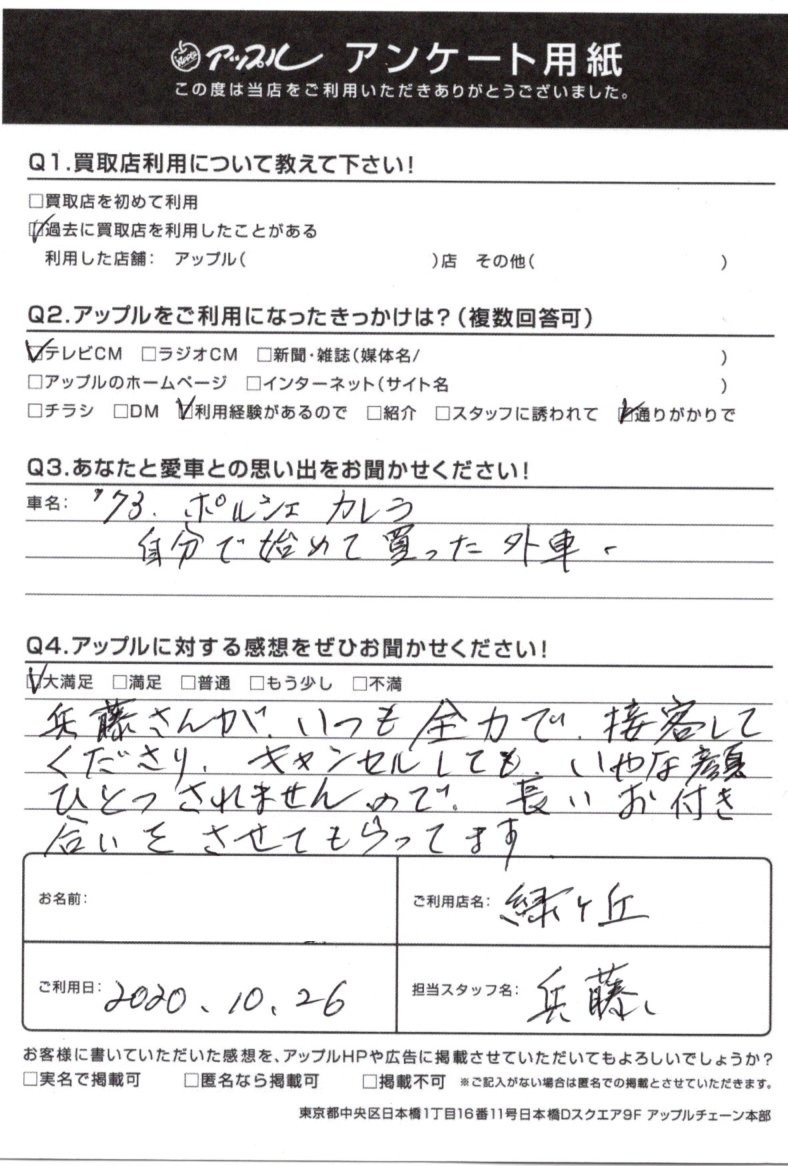 Apple アップル アンケート用紙
この度は当店をご利用いただきありがとうございました。
Q1.買取店利用について教えて下さい!
□買取店を初めて利用
☑過去に買取店を利用したことがある
利用した店舗: アップル( )店 その他( )
Q2.アップルをご利用になったきっかけは?(複数回答可)
☑テレビCM □ラジオCM □新聞・雑誌(媒体名/ )
□アップルのホームページ □インターネット(サイト名 )
□チラシ □DM ☑利用経験があるので □紹介 □スタッフに誘われて ☑通りがかりで
Q3.あなたと愛車との思い出をお聞かせください!
車名: '73. ポルシェ カレラ
自分で始めて買った外車.
Q4.アップルに対する感想をぜひお聞かせください!
☑大満足 □満足 □普通 □もう少し □不満
兵藤さんが、いつも全力で、接客して
くださり、キャンセルしても、いやな顔
ひとつされませんので、長いお付き
合いをさせてもらってます
お名前:
ご利用店名: 緑ヶ丘
ご利用日: 2020.10.26
担当スタッフ名: 兵藤
お客様に書いていただいた感想を、アップルHPや広告に掲載させていただいてもよろしいでしょうか?
□実名で掲載可 □匿名なら掲載可 □掲載不可 ※ご記入がない場合は匿名での掲載とさせていただきます。
東京都中央区日本橋1丁目16番11号日本橋Dスクエア9F アップルチェーン本部